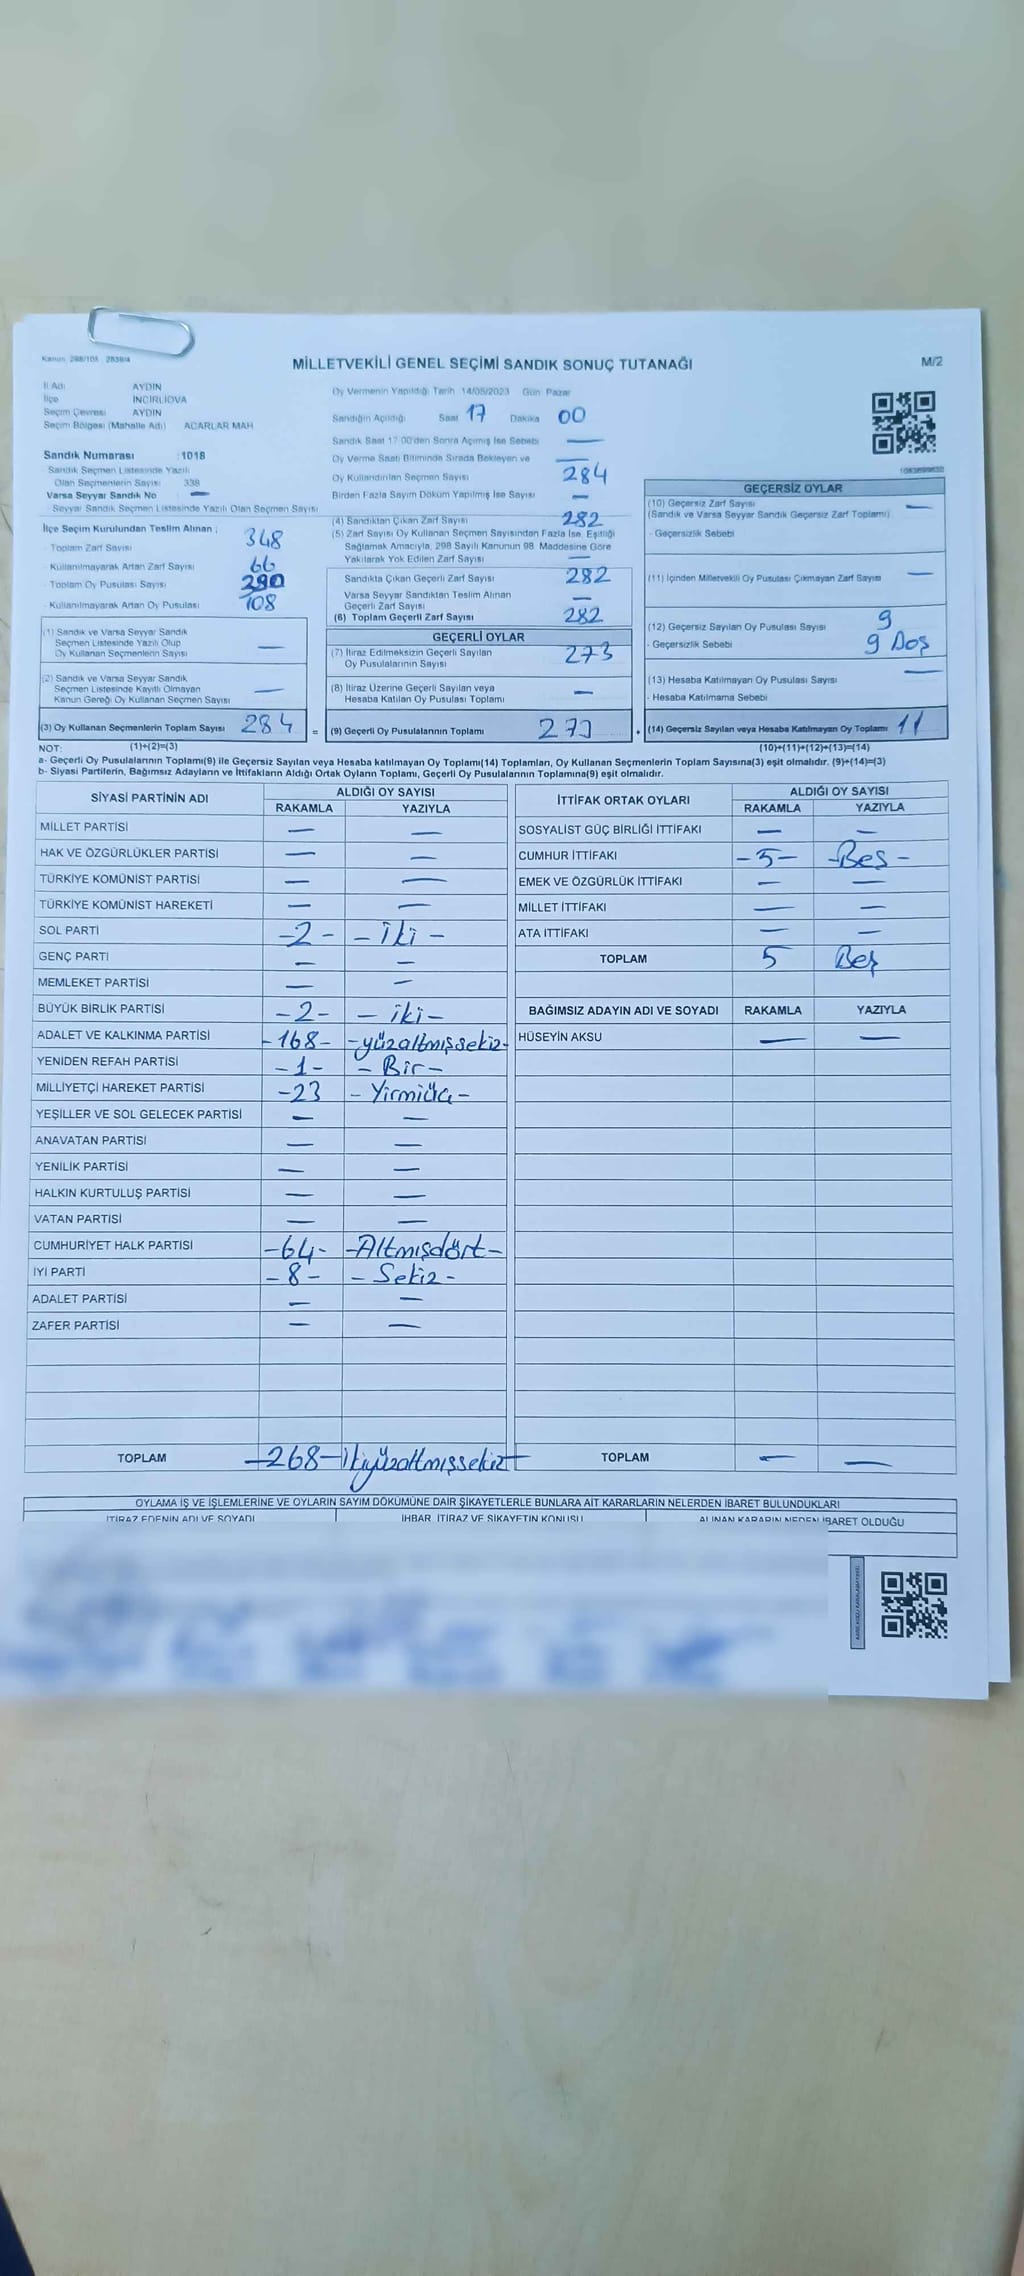 Kanun 298/105 2839/4
MİLLETVEKİLİ GENEL SEÇİMİ SANDIK SONUÇ TUTANAĞI
M/2
İl Adı AYDIN
İlçe İNCİRLİOVA
Seçim Çevresi AYDIN
Seçim Bölgesi (Mahalle Adı) ACARLAR MAH
Sandık Numarası : 1018
Sandık Seçmen Listesinde Yazılı
Olan Seçmenlerin Sayısı 338
Varsa Seyyar Sandık No —
Seyyar Sandık Seçmen Listesinde Yazılı Olan Seçmen Sayısı
İlçe Seçim Kurulundan Teslim Alınan ;
- Toplam Zarf Sayısı 348
- Kullanılmayarak Artan Zarf Sayısı 66
- Toplam Oy Pusulası Sayısı 390
- Kullanılmayarak Artan Oy Pusulası 108
(1) Sandık ve Varsa Seyyar Sandık
Seçmen Listesinde Yazılı Olup
Oy Kullanan Seçmenlerin Sayısı —
(2) Sandık ve Varsa Seyyar Sandık
Seçmen Listesinde Kayıtlı Olmayan
Kanun Gereği Oy Kullanan Seçmen Sayısı —
(3) Oy Kullanan Seçmenlerin Toplam Sayısı 284 =
Oy Vermenin Yapıldığı Tarih 14/05/2023 Gün Pazar
Sandığın Açıldığı Saat 17 Dakika 00
Sandık Saat 17:00'den Sonra Açımış İse Sebebi —
Oy Verme Saati Bitiminde Sırada Bekleyen ve —
Oy Kullandırılan Seçmen Sayısı 284
Birden Fazla Sayım Döküm Yapılmış İse Sayısı —
(4) Sandıktan Çıkan Zarf Sayısı 282
(5) Zarf Sayısı Oy Kullanan Seçmen Sayısından Fazla İse, Eşitliği
Sağlamak Amacıyla, 298 Sayılı Kanunun 98. Maddesine Göre
Yakılarak Yok Edilen Zarf Sayısı —
Sandıkta Çıkan Geçerli Zarf Sayısı 282
Varsa Seyyar Sandıktan Teslim Alınan
Geçerli Zarf Sayısı —
(6) Toplam Geçerli Zarf Sayısı 282
GEÇERLİ OYLAR
(7) İtiraz Edilmeksizin Geçerli Sayılan
Oy Pusulalarının Sayısı 273
(8) İtiraz Üzerine Geçerli Sayılan veya
Hesaba Katılan Oy Pusulası Toplamı —
(9) Geçerli Oy Pusulalarının Toplamı 273 +
GEÇERSİZ OYLAR
(10) Geçersiz Zarf Sayısı —
(Sandık ve Varsa Seyyar Sandık Geçersiz Zarf Toplamı)
- Geçersizlik Sebebi
(11) İçinden Milletvekili Oy Pusulası Çıkmayan Zarf Sayısı —
(12) Geçersiz Sayılan Oy Pusulası Sayısı 9
- Geçersizlik Sebebi 9 Boş
(13) Hesaba Katılmayan Oy Pusulası Sayısı —
- Hesaba Katılmama Sebebi
(14) Geçersiz Sayılan veya Hesaba Katılmayan Oy Toplamı 11
NOT: (1)+(2)=(3)
(10)+(11)+(12)+(13)=(14)
a- Geçerli Oy Pusulalarının Toplamı(9) ile Geçersiz Sayılan veya Hesaba katılmayan Oy Toplamı(14) Toplamları, Oy Kullanan Seçmenlerin Toplam Sayısına(3) eşit olmalıdır. (9)+(14)=(3)
b- Siyasi Partilerin, Bağımsız Adayların ve İttifakların Aldığı Ortak Oyların Toplamı, Geçerli Oy Pusulalarının Toplamına(9) eşit olmalıdır.
SİYASİ PARTİNİN ADI ALDIĞI OY SAYISI
RAKAMLA YAZIYLA
MİLLET PARTİSİ — —
HAK VE ÖZGÜRLÜKLER PARTİSİ — —
TÜRKİYE KOMÜNİST PARTİSİ — —
TÜRKİYE KOMÜNİST HAREKETİ — —
SOL PARTİ -2- -iki-
GENÇ PARTİ — —
MEMLEKET PARTİSİ — —
BÜYÜK BİRLİK PARTİSİ -2- -iki-
ADALET VE KALKINMA PARTİSİ -168- -yüzaltmışsekiz-
YENİDEN REFAH PARTİSİ -1- -Bir-
MİLLİYETÇİ HAREKET PARTİSİ -23 -Yirmiüç-
YEŞİLLER VE SOL GELECEK PARTİSİ — —
ANAVATAN PARTİSİ — —
YENİLİK PARTİSİ — —
HALKIN KURTULUŞ PARTİSİ — —
VATAN PARTİSİ — —
CUMHURİYET HALK PARTİSİ -64- -Altmışdört-
İYİ PARTİ -8- -Sekiz-
ADALET PARTİSİ — —
ZAFER PARTİSİ — —
TOPLAM -268- ikiyüzaltmışsekiz-
İTTİFAK ORTAK OYLARI ALDIĞI OY SAYISI
RAKAMLA YAZIYLA
SOSYALİST GÜÇ BİRLİĞİ İTTİFAKI — —
CUMHUR İTTİFAKI -5- -Beş-
EMEK VE ÖZGÜRLÜK İTTİFAKI — —
MİLLET İTTİFAKI — —
ATA İTTİFAKI — —
TOPLAM 5 Beş
BAĞIMSIZ ADAYIN ADI VE SOYADI RAKAMLA YAZIYLA
HÜSEYİN AKSU — —
TOPLAM — —
OYLAMA İŞ VE İŞLEMLERİNE VE OYLARIN SAYIM DÖKÜMÜNE DAİR ŞİKAYETLERLE BUNLARA AİT KARARLARIN NELERDEN İBARET BULUNDUKLARI
İTİRAZ EDENİN ADI VE SOYADI İHBAR, İTİRAZ VE ŞİKAYETİN KONUSU ALINAN KARARIN NEDEN İBARET OLDUĞU